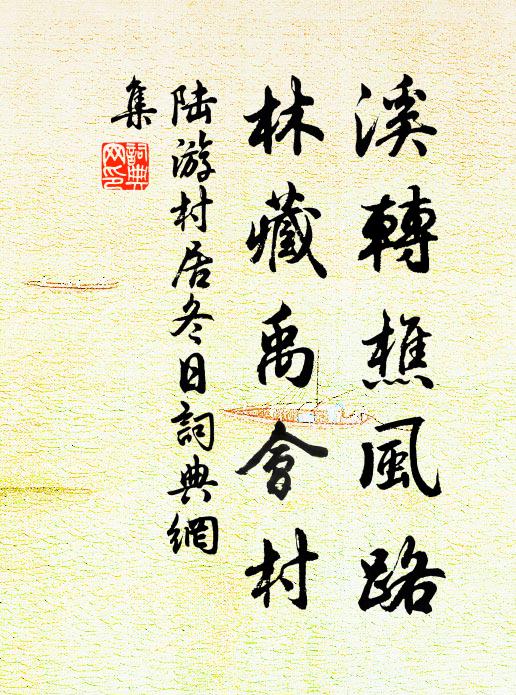 溪轉樵風路
林藏禹會村
陸游村居冬日詞典網
集
詞典
网印